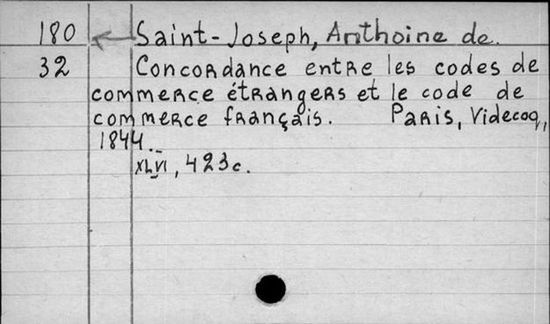 180 ← Saint-Joseph, Anthoine de.
32 Concordance entre les codes de
commerce étrangers et le code de
commerce français. Paris, Videcoq,
1844.
XLVI, 423c.